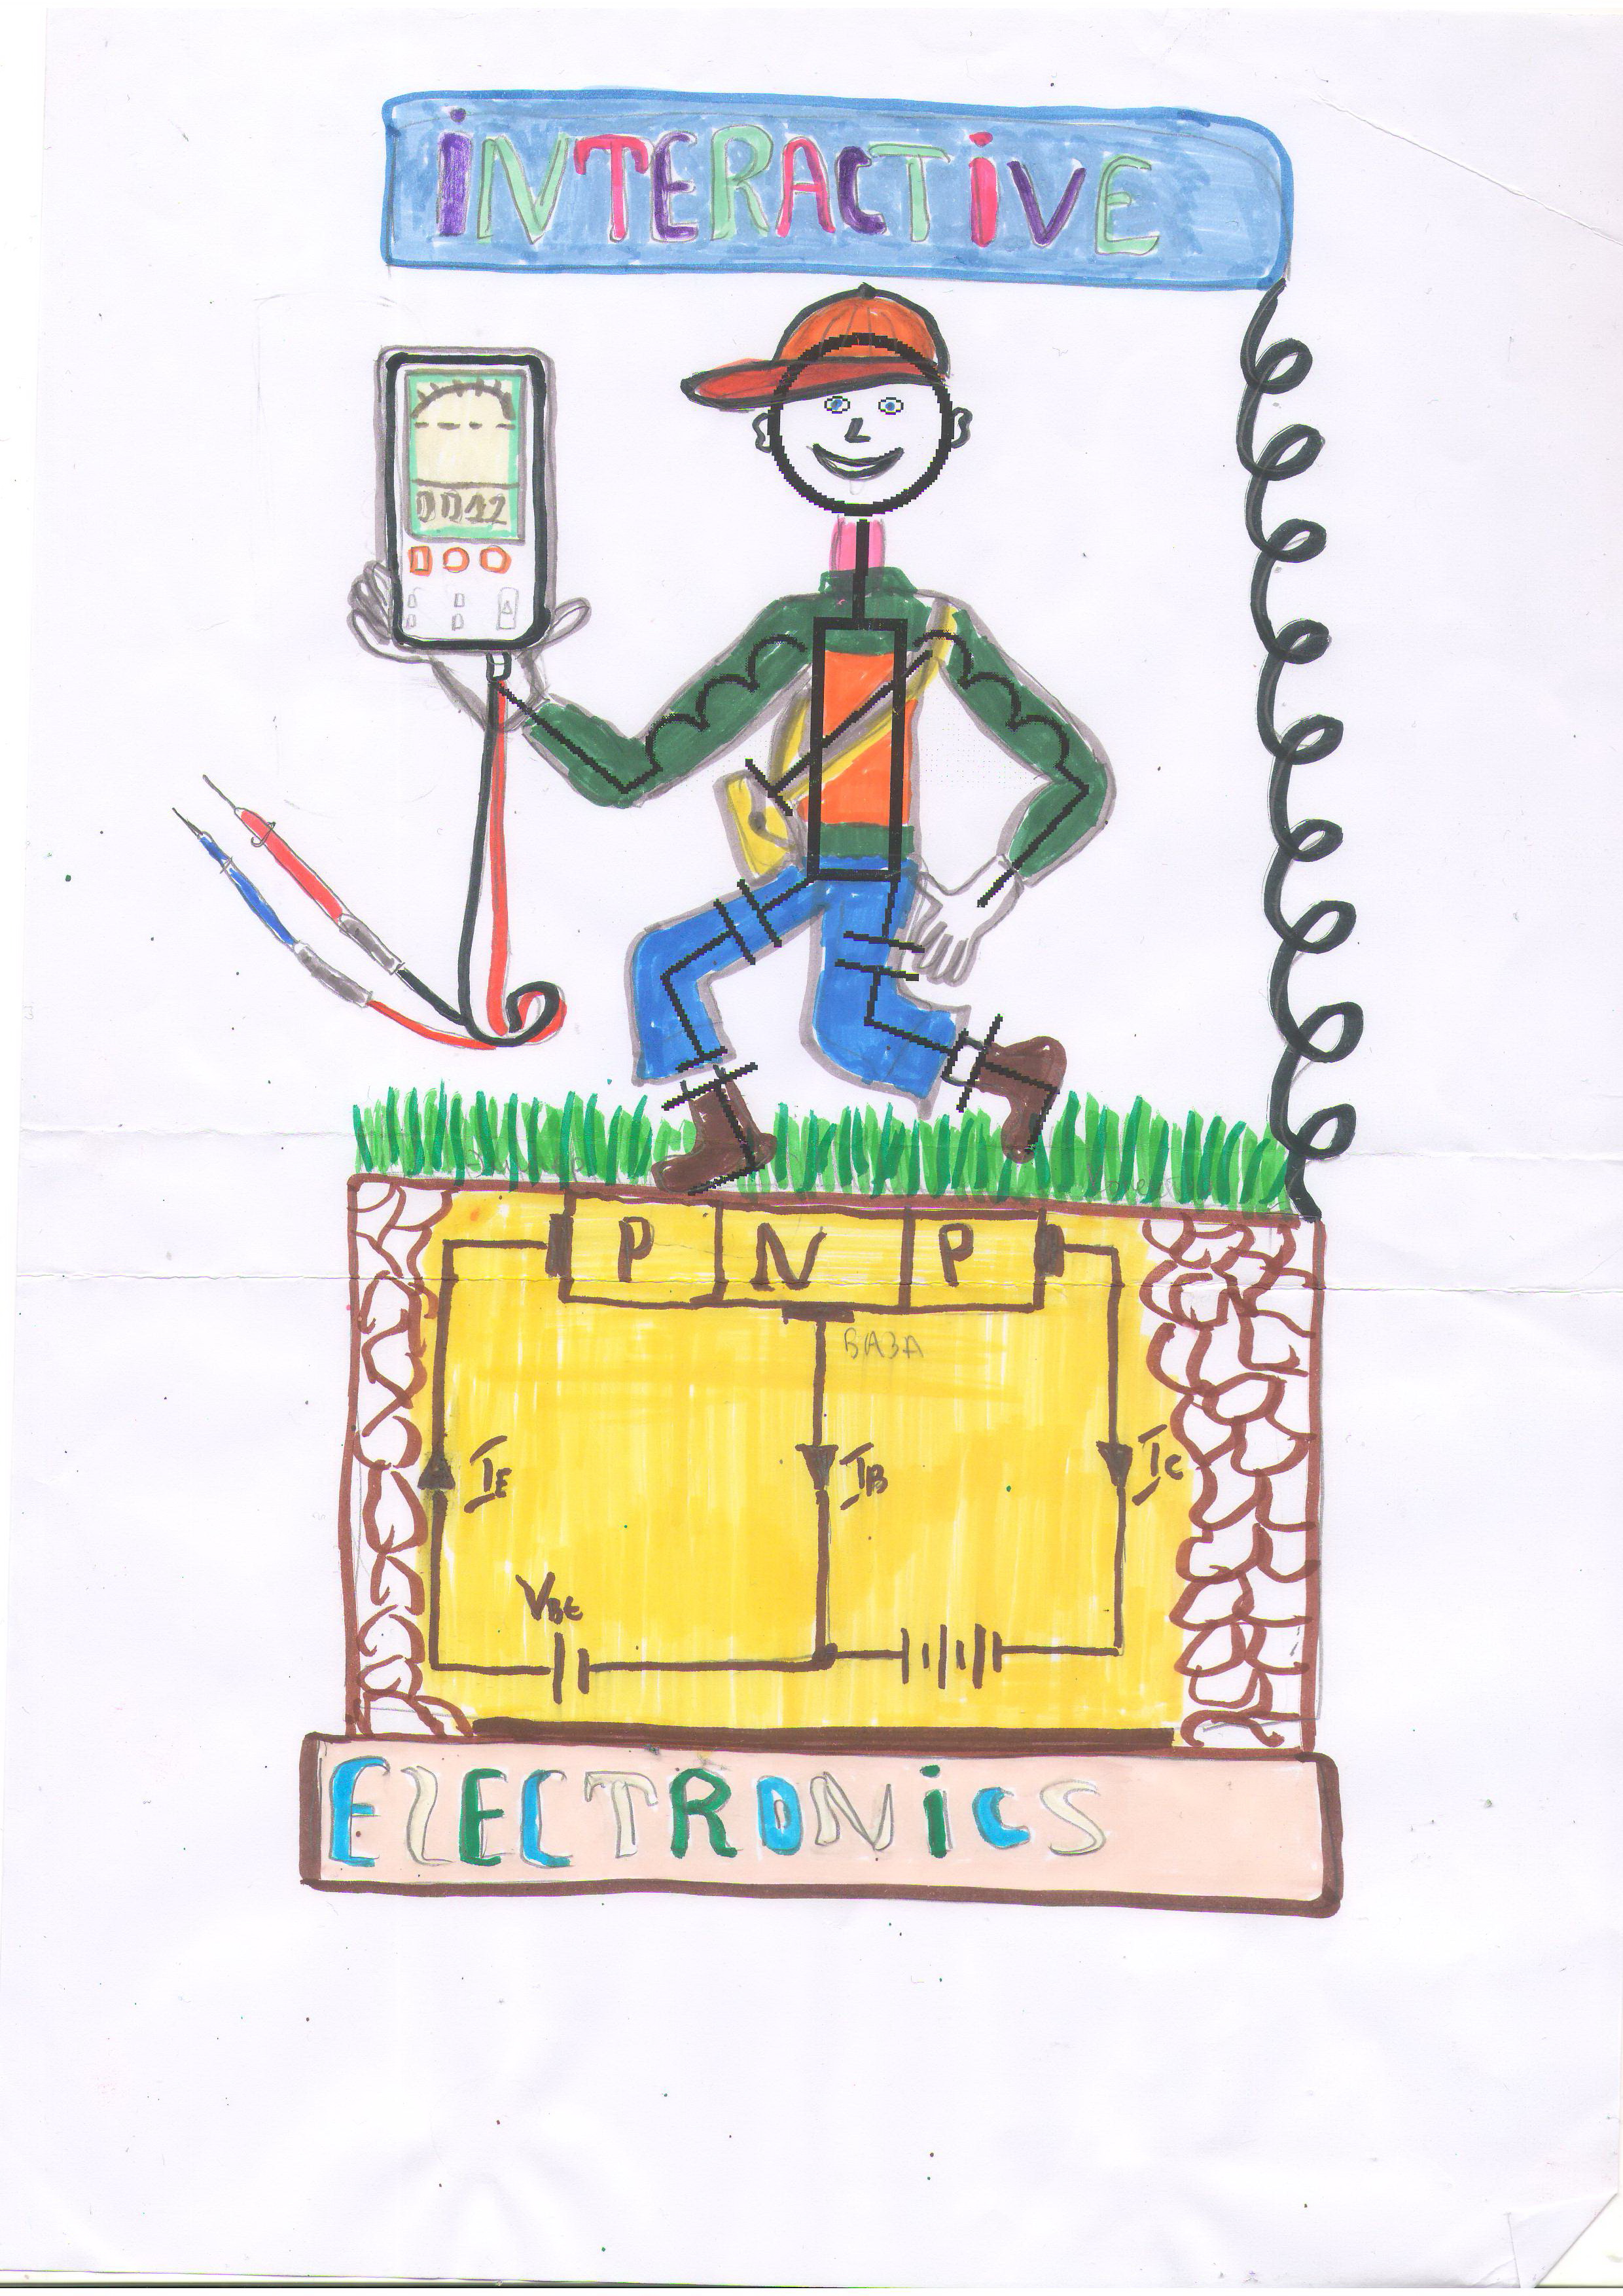 iNTERACTiVE
0012
P N P
БАЗА
IE IB IC
VBE
ELECTRONiCS